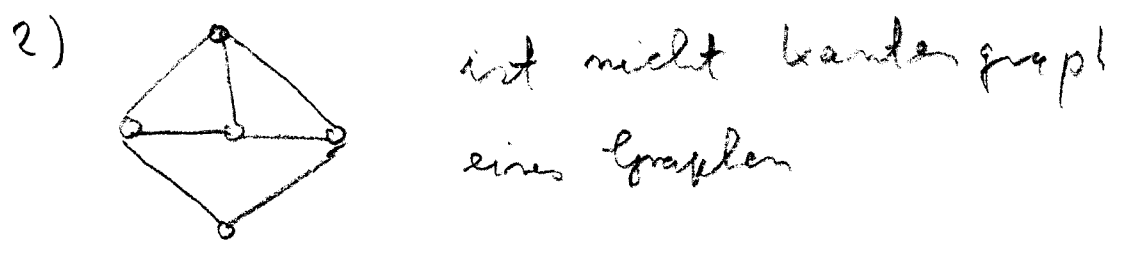 2) ist nicht kantengraph
eines Graphen